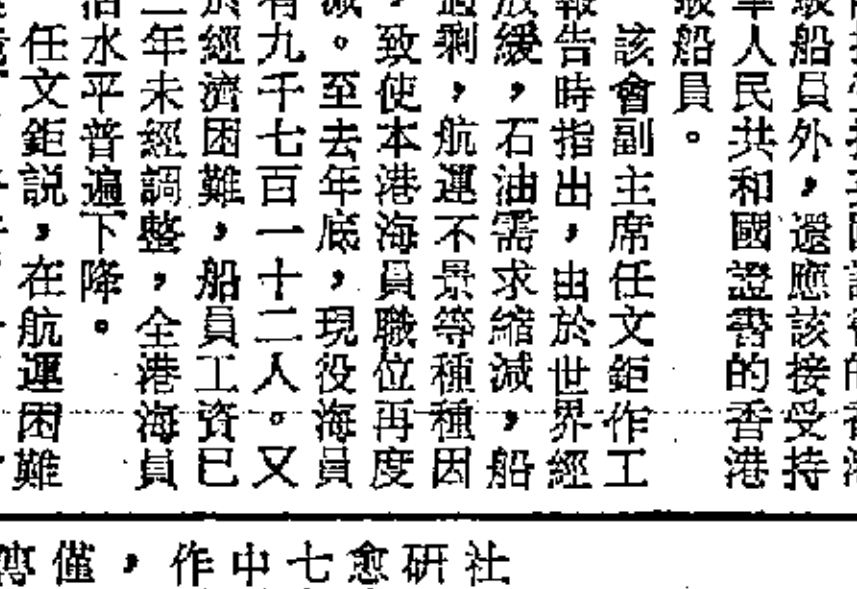 船員外，還應該接受持
華人民共和國證書的香港
級船員。
該會副主席任文鉅作工
報告時指出，由於世界經
放緩，石油需求縮減，船
過剩，航運不景等種種因
，致使本港海員職位再度
減。至去年底，現役海員
有九千七百一十二人。又
於經濟困難，船員工資已
二年未經調整，全港海員
活水平普遍下降。
任文鉅説，在航運困難
社
研
愈
七
中
作
，
僅